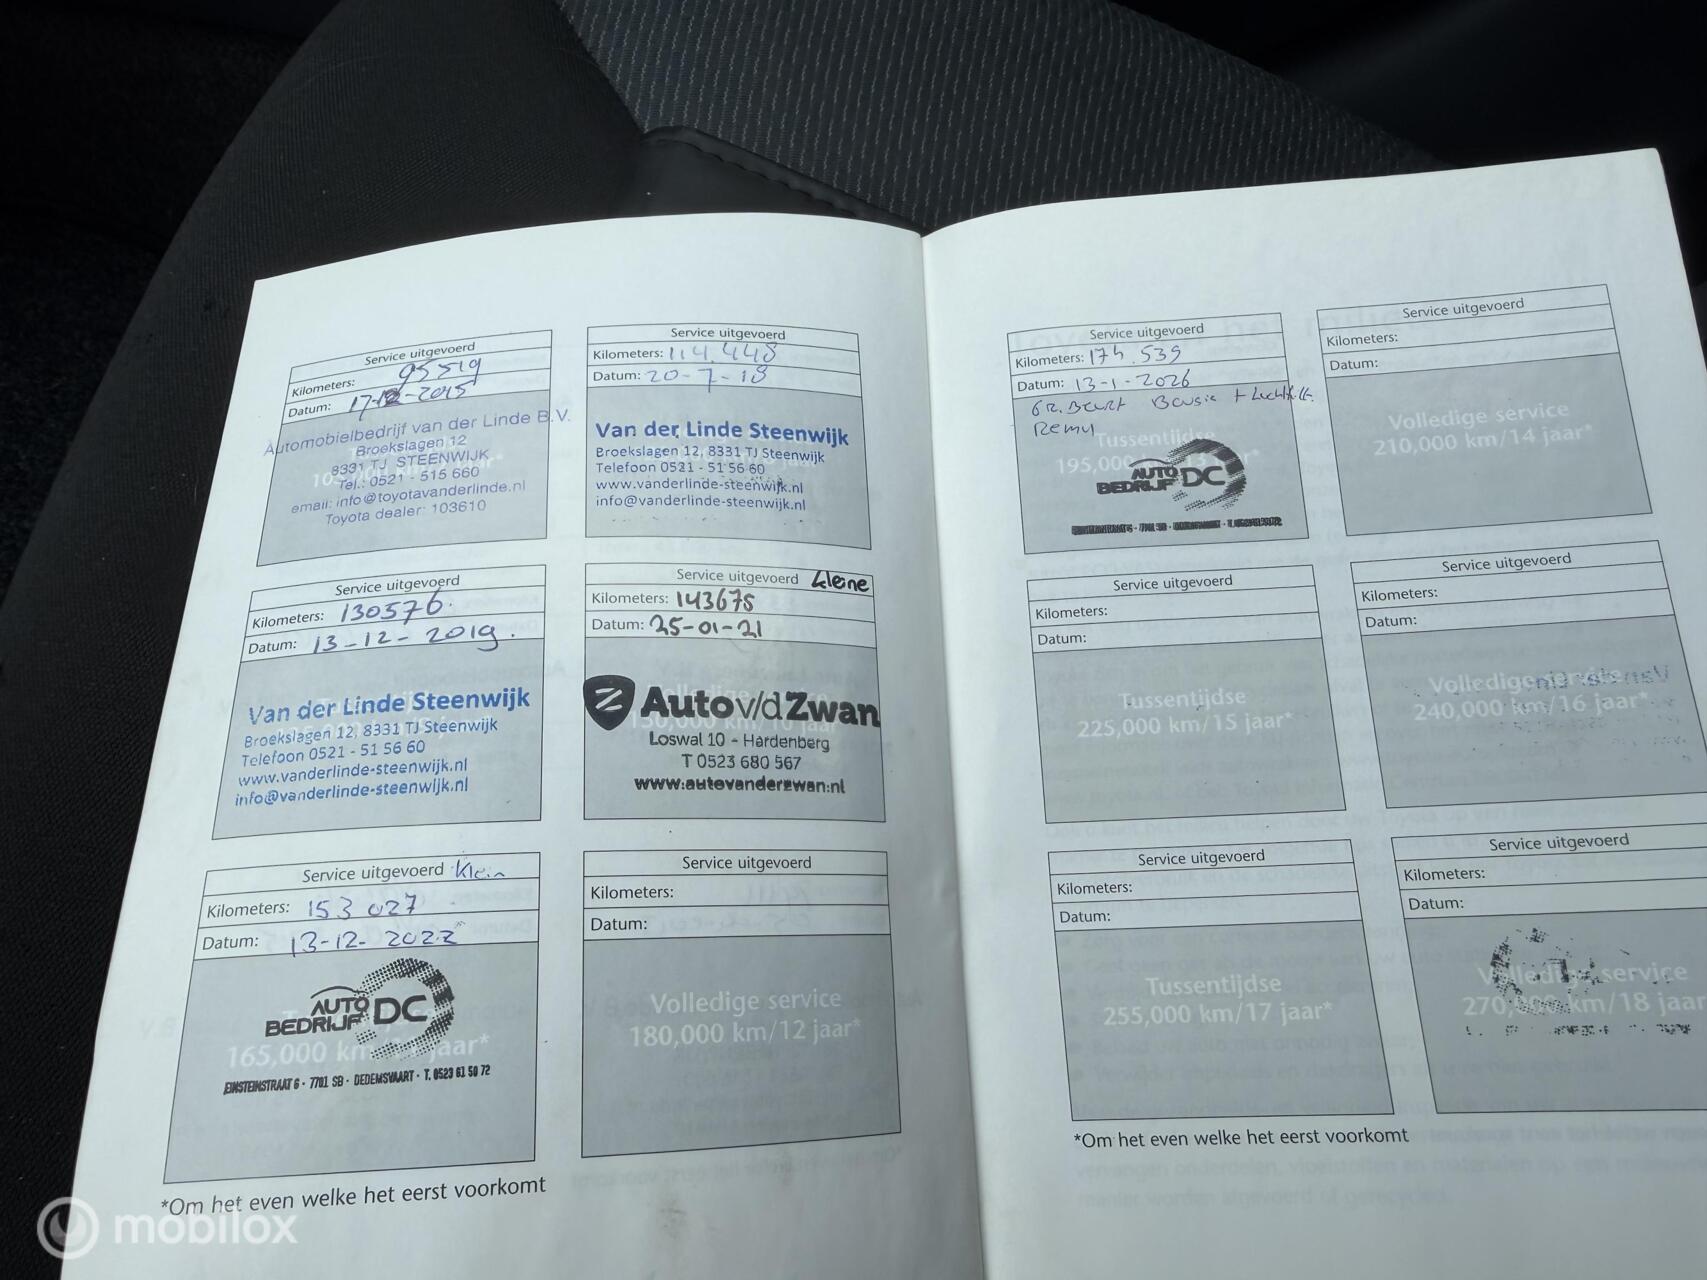 Service uitgevoerd
Kilometers: 95519
Datum: 17-12-2015
Automobielbedrijf van der Linde B.V.
Broekslagen 12
8331 TJ STEENWIJK
Tel.: 0521 - 515 660
email: info@toyotavanderlinde.nl
Toyota dealer: 103610
Service uitgevoerd
Kilometers: 114.448
Datum: 20-7-18
Van der Linde Steenwijk
Broekslagen 12, 8331 TJ Steenwijk
Telefoon 0521 - 51 56 60
www.vanderlinde-steenwijk.nl
info@vanderlinde-steenwijk.nl
Service uitgevoerd
Kilometers: 130576.
Datum: 13-12-2019.
Van der Linde Steenwijk
Broekslagen 12, 8331 TJ Steenwijk
Telefoon 0521 - 51 56 60
www.vanderlinde-steenwijk.nl
info@vanderlinde-steenwijk.nl
Service uitgevoerd kleine
Kilometers: 143675
Datum: 25-01-21
Auto v/d Zwan
Loswal 10 - Hardenberg
T 0523 680 567
www.autovanderzwan.nl
Service uitgevoerd Klein
Kilometers: 153 027
Datum: 13-12-2022
AUTO
BEDRIJF DC
165,000 km/ jaar*
EINSTEINSTRAAT 6 · 7701 SB · DEDEMSVAART · T. 0523 61 50 72
Service uitgevoerd
Kilometers:
Datum:
Volledige service
180,000 km/12 jaar*
*Om het even welke het eerst voorkomt
Service uitgevoerd
Kilometers: 174.539
Datum: 13-1-2026
Gr. Beurt Bousie +
Remu
Tussentijdse
195,000
AUTO
BEDRIJF DC
Service uitgevoerd
Kilometers:
Datum:
Volledige service
210,000 km/14 jaar*
Service uitgevoerd
Kilometers:
Datum:
Tussentijdse
225,000 km/15 jaar*
Service uitgevoerd
Kilometers:
Datum:
Volledige service
240,000 km/16 jaar*
Service uitgevoerd
Kilometers:
Datum:
Tussentijdse
255,000 km/17 jaar*
Service uitgevoerd
Kilometers:
Datum:
Volledige service
270,000 km/18 jaar
*Om het even welke het eerst voorkomt
mobilox